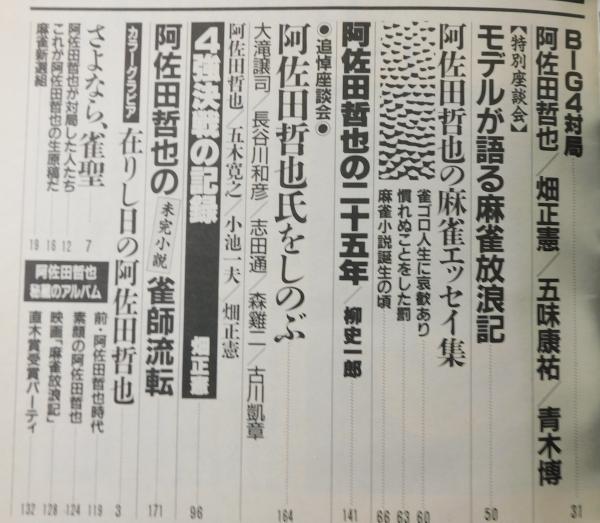 BIG4対局
阿佐田哲也／畑正憲／五味康祐／青木博 31
【特別座談会】
モデルが語る麻雀放浪記 50
阿佐田哲也の麻雀エッセイ集
雀ゴロ人生に哀歓あり 60
慣れぬことをした罰 63
麻雀小説誕生の頃 66
阿佐田哲也の二十五年／柳史一郎 141
●追悼座談会●
阿佐田哲也氏をしのぶ 164
大滝譲司／長谷川和彦／志田通／森雞二／古川凱章
阿佐田哲也／五木寛之／小池一夫／畑正憲
4強決戦の記録 畑正憲 96
阿佐田哲也の 未完小説 雀師流転 171
カラーグラビア 在りし日の阿佐田哲也 3
さよなら、雀聖 7
阿佐田哲也が対局した人たち 12
これが阿佐田哲也の生原稿だ 16
麻雀新選組 19
阿佐田哲也
秘蔵のアルバム
前・阿佐田哲也時代 119
素顔の阿佐田哲也 124
映画「麻雀放浪記」 128
直木賞受賞パーティ 132